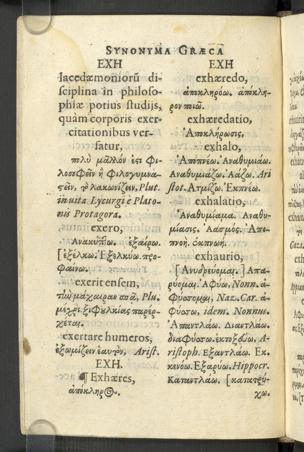 SYNONYMA GRÆCA
EXH
lacedæmoniorũ di-
sciplina in philoso-
phiæ potius studijs,
quàm corporis exer-
citationibus ver-
satur,
πολὺ μᾶλλόν ἐστι φι-
λοσοφεῖν ἢ φιλογυμνα-
στεῖν, τὸ λακωνίζειν, Plut.
in uita Lycurgi è Plato-
nis Protagora.
exero,
Ἀνακύπτω. ἐξαίρω.
[ἐξέλκω. Ἐξελκύω. προ-
φαίνω.
exerit ensem,
Plu.
exertare humeros,
Arist.
EXH.
¶ Exhæres,
ἀπόκληρ
EXH
exhæredo,
ἀποκληρόω. ἀπόκλη-
ρον ποιῶ.
exhæredatio,
Ἀποκλήρωσις,
exhalo,
Ἀποπνέω. Ἀναθυμιάω.
Ἀναθυμιάζω. Ἀάζω. Ari
stot. Ἀτμίζω. Ἐκπνέω.
exhalatio,
Ἀναθυμίαμα. Ἀναθυ-
μίασις. Ἀασμός. Ἀπο-
πνοή. ἐκπνοή.
exhaurio,
Ἀπα-
ρύομαι. Ἀφύω, Nonn. ἀ-
φύσσομαι, Naz. Car. ἀ-
φύσσω, idem. Nonnus.
Ἀπαντλέω. Διαντλέω.
διαφύσσω. ἐκτοξεύω, A-
ristoph. Ἐξαντλέω. Ἐκ-
κενόω. Ἐξαρύω. Hippocr.
Καταντλέω.